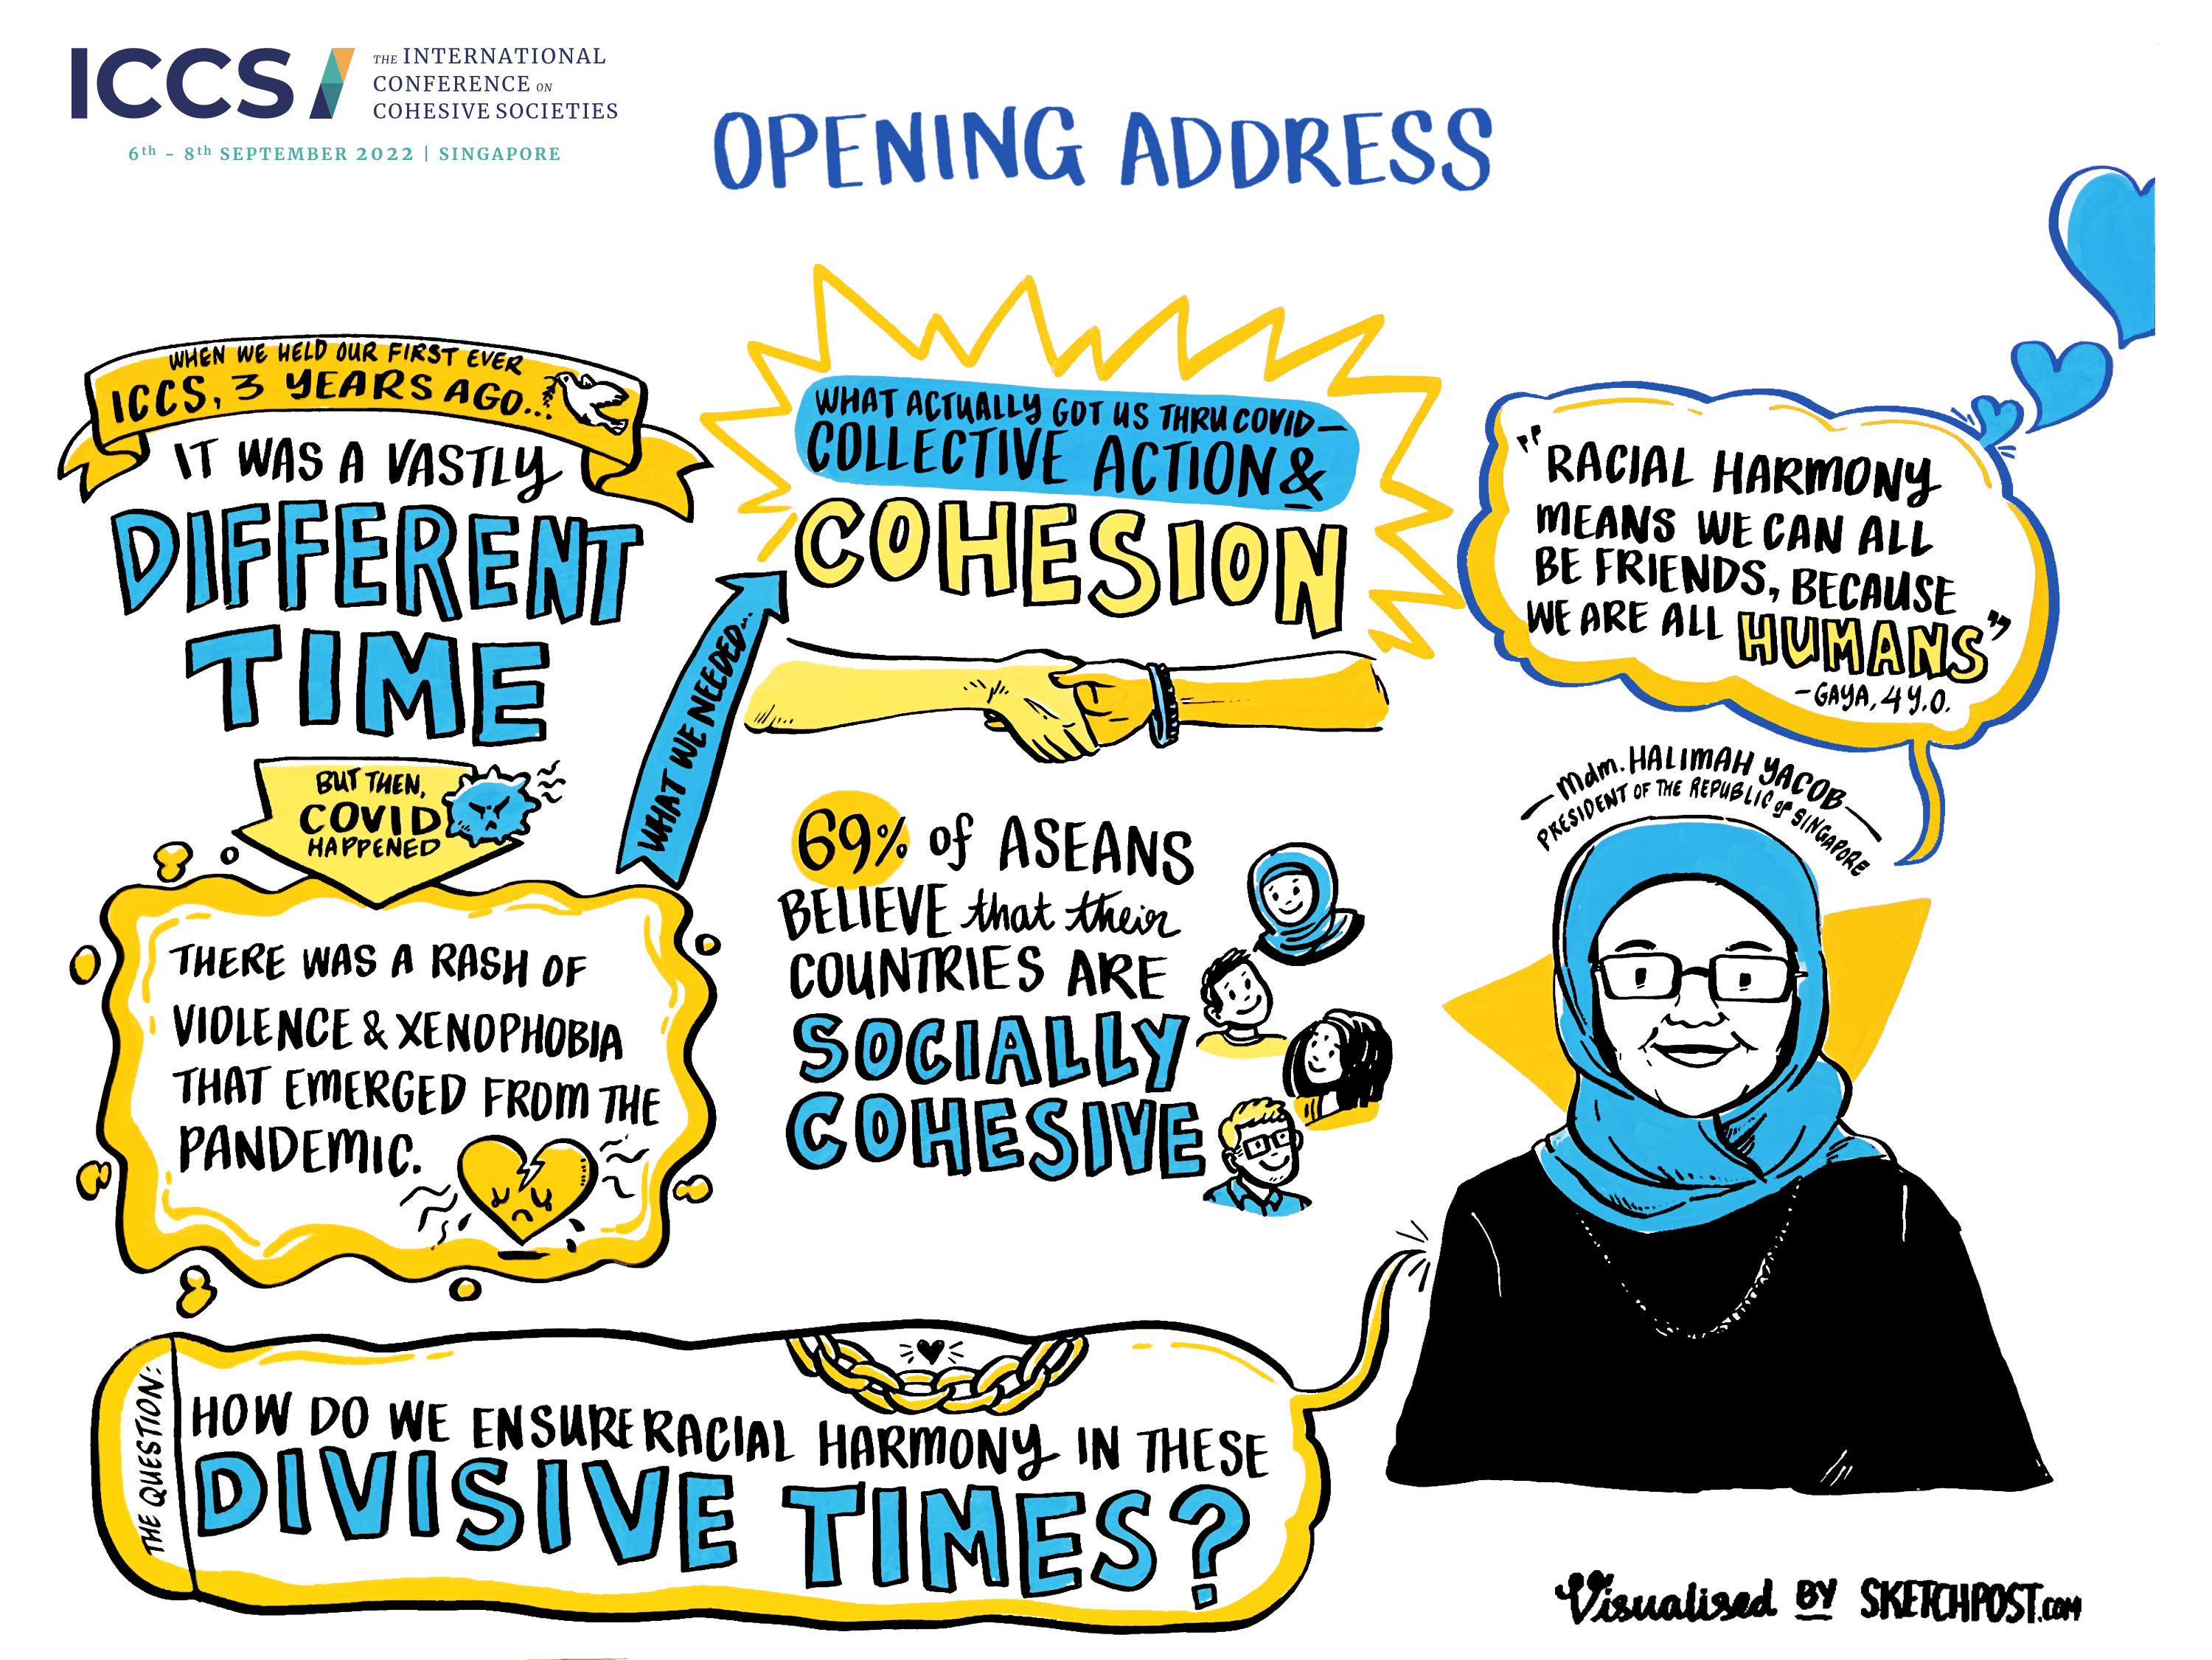 ICCS
THE INTERNATIONAL
CONFERENCE ON
COHESIVE SOCIETIES
6th - 8th SEPTEMBER 2022 | SINGAPORE
OPENING ADDRESS
WHEN WE HELD OUR FIRST EVER
ICCS, 3 YEARS AGO...
IT WAS A VASTLY
DIFFERENT
TIME
BUT THEN,
COVID
HAPPENED
THERE WAS A RASH OF
VIOLENCE & XENOPHOBIA
THAT EMERGED FROM THE
PANDEMIC.
WHAT WE NEEDED...
WHAT ACTUALLY GOT US THRU COVID—
COLLECTIVE ACTION &
COHESION
69% of ASEANS
BELIEVE that their
COUNTRIES ARE
SOCIALLY
COHESIVE
"RACIAL HARMONY
MEANS WE CAN ALL
BE FRIENDS, BECAUSE
WE ARE ALL HUMANS"
- GAYA, 4 Y.O.
Mdm. HALIMAH YACOB
PRESIDENT OF THE REPUBLIC of SINGAPORE
THE QUESTION:
HOW DO WE ENSURE RACIAL HARMONY IN THESE
DIVISIVE TIMES?
Visualised BY SKETCHPOST.COM